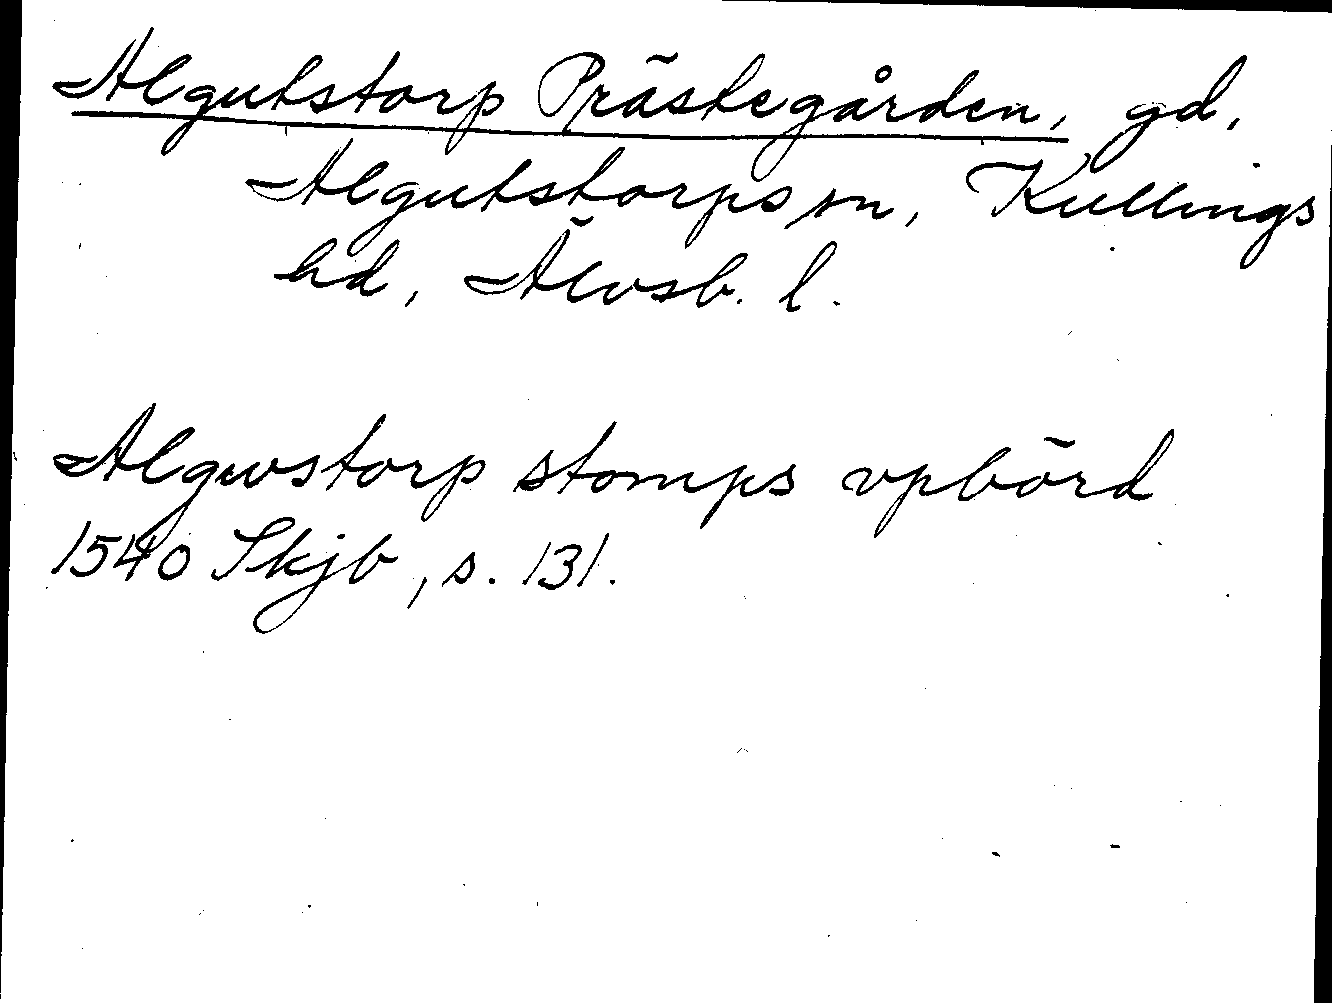 Algutstorp Prästegården, gd,
Algutstorps sn, Kullings
hd, Älvsb. l.
Algwstorp stomps vpbörd
1540 Skjb, s. 131.